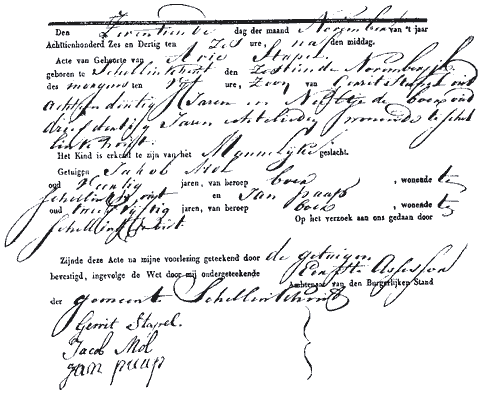 Den Zeventiende dag der maand November van 't jaar
Achttienhonderd Zes en Dertig ten Zes ure, na den middag.
Acte van Geboorte van Arie Stapel
geboren te Schellinkhout den Zestiende November
des morgens ten Vyf ure, Zoon van Gerrit Stapel oud
Acht en dertig Jaren en Neeltje de boer oud
Drie en dertig Jaren Echtelieden wonende te Schel
linkhout
Het Kind is erkend te zijn van het Mannelyke geslacht.
Getuigen Jakob Mol
oud jaren, van beroep boer , wonende te
Schellinkhout en Jan paap
oud jaren, van beroep boer , wonende te
Schellinkhout Op het verzoek aan ons gedaan door
Zijnde deze Acte na zijne voorlezing geteekend door de getuigen
bevestigd, ingevolge de Wet door mij ondergeteekende Eerste Assessor
Ambtenaar van den Burgerlijken Stand
der gemeente Schellinkhout
Gerrit Stapel.
Jacob Mol
jan paap